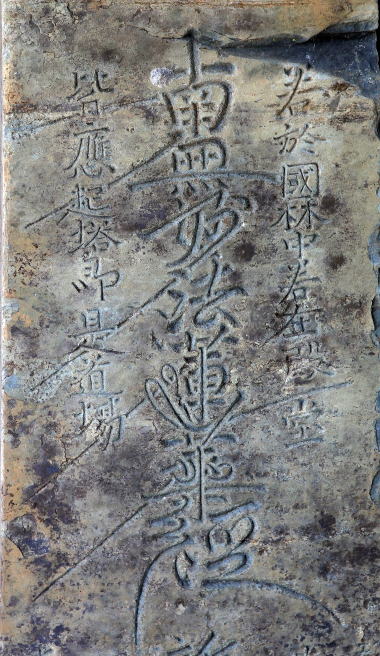 若於國林中若在殿堂
南無妙法蓮華經
皆應起塔即是道場